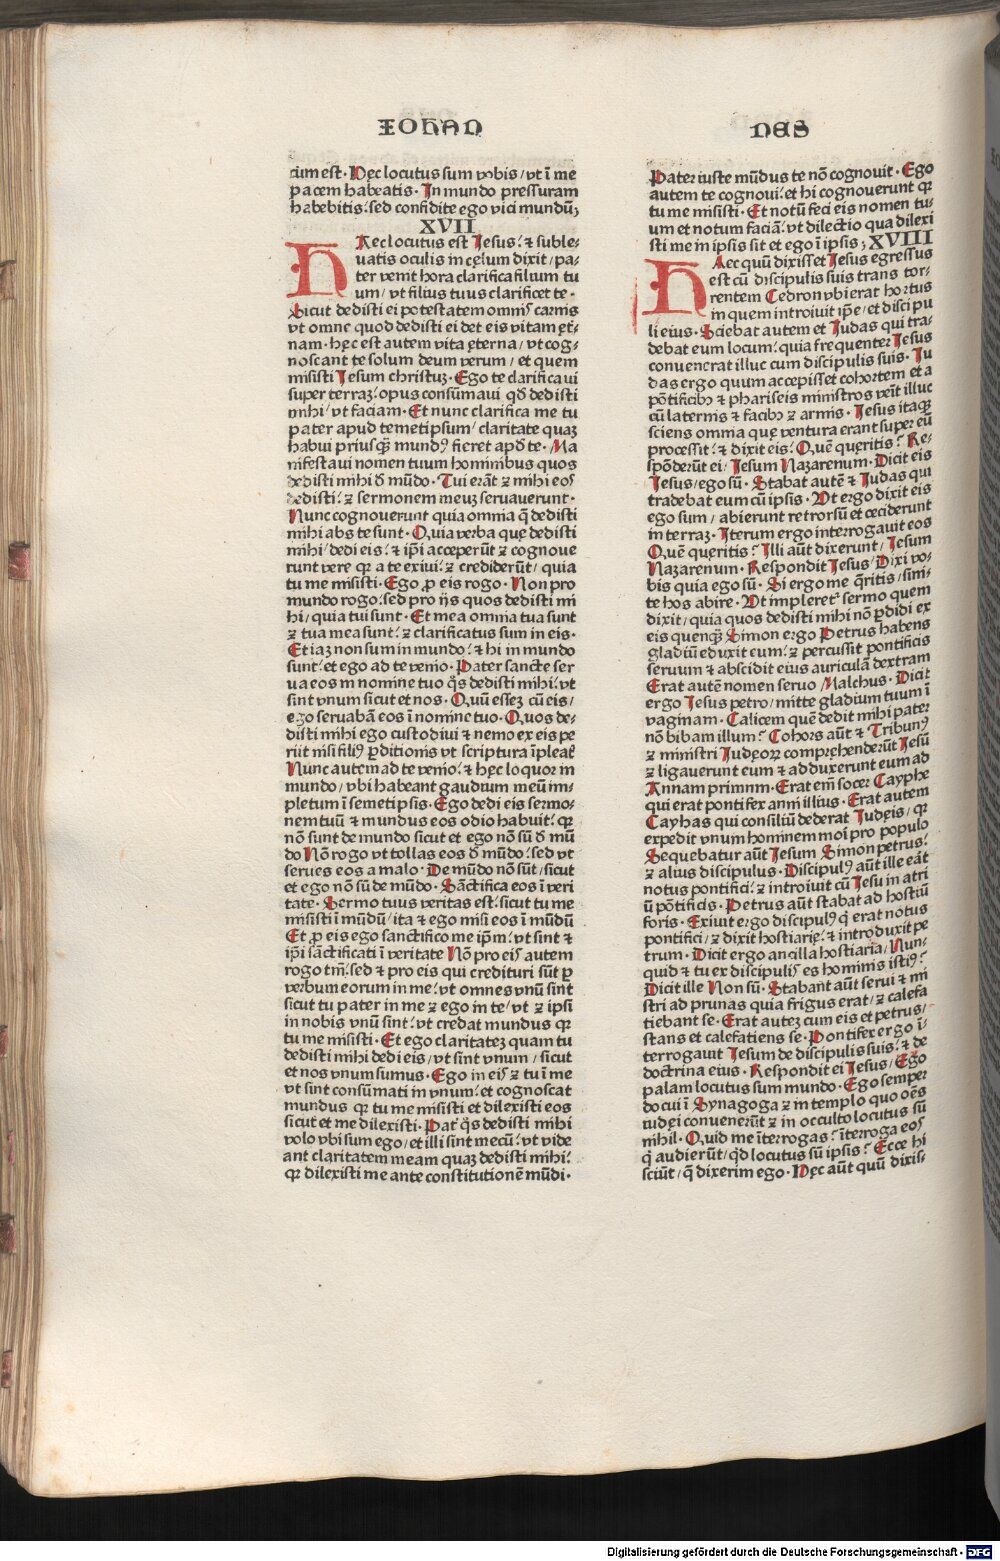 IOHAN
cum est· Hęc locutus sum vobis/vt ī me
pacem habeatis· In mundo pressuram
habebitis: sed confidite ego vici mundūʒ
XVII
HAec locutus est Iesus: ⁊ suble-
uatis oculis in cęlum dixit/pa-
ter venit hora clarifica filium tu
um/vt filius tuus clarificet te·
Sicut dedisti ei potestatem omnis carnis
vt omne quod dedisti ei det eis vitam ęt-
nam· hęc est autem vita ęterna/vt cog-
noscant te solum deum verum/et quem
misisti Iesum christuʒ· Ego te clarificaui
super terraʒ: opus consūmaui qd̄ dedisti
mihi/vt faciam· Et nunc clarifica me tu
pater apud temetipsum/claritate quaʒ
habui priusqʒ mundꝰ fieret apd̄ te· Ma
nifestaui nomen tuum hominibus quos
dedisti mihi đ mūdo· Tui erāt ⁊ mihi eos
dedisti: ⁊ sermonem meuʒ seruauerunt·
Nunc cognouerunt quia omnia q̄ dedisti
mihi abs te sunt· Quia verba quę dedisti
mihi/dedi eis: ⁊ ip̄i acceperūt ⁊ cognoue
runt vere qꝛ a te exiui: ⁊ crediderūt/quia
tu me misisti· Ego ꝓ eis rogo· Non pro
mundo rogo: sed pro ijs quos dedisti mi
hi/quia tui sunt· Et mea omnia tua sunt
⁊ tua mea sunt: ⁊ clarificatus sum in eis·
Et iaʒ non sum in mundo: ⁊ hi in mundo
sunt: et ego ad te venio· Pater sancte ser
ua eos in nomine tuo q̄s dedisti mihi: vt
sint vnum sicut et nos· Quū esseʒ cū eis/
ego seruabā eos ī nomine tuo· Quos de-
disti mihi ego custodiui ⁊ nemo ex eis pe
riit nisi filiꝰ ꝑditionis vt scriptura īpleat̄
Nunc autem ad te venio: ⁊ hęc loquor in
mundo/vbi habeant gaudium meū im-
pletum ī semetipsis· Ego dedi eis sermo-
nem tuū ⁊ mundus eos odio habuit: qꝛ
nō sunt de mundo sicut et ego nō sū đ mū
do Nō rogo vt tollas eos đ mūdo: sed vt
serues eos a malo· De mūdo nō sūt/sicut
et ego nō sū de mūdo· Sāctifica eos ī veri
tate· Sermo tuus veritas est: sicut tu me
misisti ī mūdū/ita ⁊ ego misi eos ī mūdū
Et ꝓ eis ego sanctifico me ip̄m: vt sint ⁊
ip̄i sāctificati ī veritate Nō pro eis autem
rogo tm̄: sed ⁊ pro eis qui credituri sūt ꝑ
verbum eorum in me: vt omnes vnū sint
sicut tu pater in me ⁊ ego in te/vt ⁊ ipsi
in nobis vnū sint: vt credat mundus qꝛ
tu me misisti· Et ego claritateʒ quam tu
dedisti mihi dedi eis/vt sint vnum/sicut
et nos vnum sumus· Ego in eis ⁊ tu ī me
vt sint consūmati in vnum: et cognoscat
mundus qꝛ tu me misisti et dilexisti eos
sicut et me dilexisti· Pat̄ q̄s dedisti mihi
volo vbi sum ego/et illi sint mecū: vt vide
ant claritatem meam quaʒ dedisti mihi:
qꝛ dilexisti me ante constitutionē mūdi·
NES
Pater iuste mūdus te nō cognouit· Ego
autem te cognoui: et hi cognouerunt qꝛ
tu me misisti· Et notū feci eis nomen tu-
um et notum faciā: vt dilectio qua dilexi
sti me in ipsis sit et ego ī ipsis; XVIII
HAec quū dixisset Iesus egressus
est cū discipulis suis trans tor-
rentem Cedron vbi erat hortus
in quem introiuit ip̄e/et discipu
li eius· Sciebat autem et Iudas qui tra-
debat eum locum: quia frequenter Iesus
conuenerat illuc cum discipulis suis· Iu
das ergo quum accepisset cohortem et a
pōtificibꝫ ⁊ phariseis ministros venīt illuc
cū laternis ⁊ facibꝫ ⁊ armis· Iesus itaqʒ
sciens omnia quę ventura erant super eū
processit: ⁊ dixit eis: Quē quęritis? Re-
spōderūt ei/Iesum Nazarenum· Dicit eis
Iesus/ego sū· Stabat autē ⁊ Iudas qui
tradebat eum cū ipsis· Vt ergo dixit eis
ego sum/abierunt retrorsū et ceciderunt
in terraʒ· Iterum ergo interrogauit eos
Quē quęritis? Illi aūt dixerunt/Iesum
Nazarenum· Respondit Iesus/Dixi vo-
bis quia ego sū· Si ergo me q̄ritis/sini-
te hos abire· Vt impleret̄ sermo quem
dixit/quia quos dedisti mihi nō ꝑdidi ex
eis quenqʒ Simon ergo Petrus habens
gladiū eduxit eum: ⁊ percussit pontificis
seruum ⁊ abscidit eius auriculā dextram
Erat autē nomen seruo Malchus· Dicit
ergo Iesus petro/mitte gladium tuum ī
vaginam· Calicem quē dedit mihi pater
nō bibam illum? Cohors aūt ⁊ Tribunꝰ
⁊ ministri Iudęoꝝ compręhenderūt Iesū
⁊ ligauerunt eum ⁊ adduxerunt eum ad
Annam primnm· Erat em̄ socer Cayphe
qui erat pontifex anni illius· Erat autem
Cayhas qui consiliū dederat Iudęis/qꝛ
expedit vnum hominem moī pro populo
Sequebatur aūt Iesum Simon petrus:
⁊ alius discipulus· Discipulꝰ aūt ille eāt
notus pontifici: ⁊ introiuit cū Iesu in atri
ū pōtificis· Petrus aūt stabat ad hostiū
foris· Exiuit ergo discipulꝰ q̄ erat notus
pontifici/⁊ dixit hostiarię: ⁊ introduxit pe
trum· Dicit ergo ancilla hostiaria/Nun-
quid ⁊ tu ex discipulis es hominis istiꝰ?
Dicit ille Non sū· Stabant aūt serui ⁊ mi
stri ad prunas quia frigus erat/⁊ calefa
tiebant se· Erat auteʒ cum eis et petrus/
stans et calefatiens se· Pontifex ergo ī-
terrogauit Iesum de discipulis suis: ⁊ de
doctrina eius· Respondit ei Iesus/Ego
palam locutus sum mundo· Ego semper
docui ī Synagoga ⁊ in templo quo oēs
iudęi conuenerūt ⁊ in occulto locutus sū
nihil· Quid me īterrogas? īterroga eos
q̄ audierūt/qd̄ locutus sū ipsis? Ecce hi
sciūt/q̄ dixerim ego· Hęc aūt quū dixis-
Digitalisierung gefördert durch die Deutsche Forschungsgemeinschaft - DFG